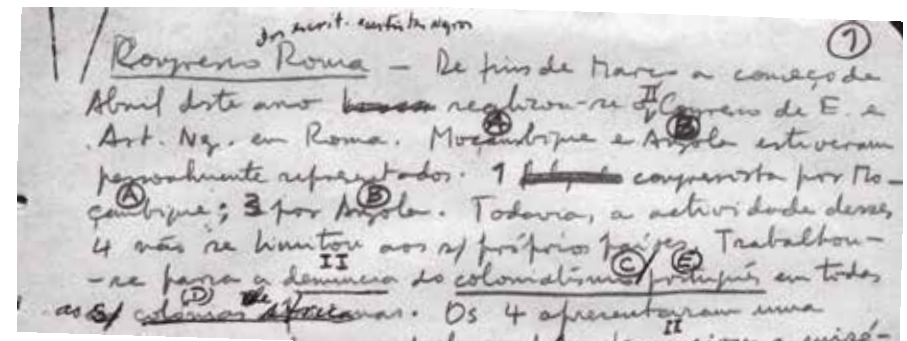 dos escrit. e artistas negros
1
Congresso Roma — De fins de Março a começo de
Abril deste ano realizou-se o II Congresso de E. e
Art. Ng. em Roma. Moçambique e Angola estiveram
A B
pessoalmente representados. 1 congressista por Mo-
çambique; 3 por Angola. Todavia, a actividade desses
A B
4 não se limitou aos s/ próprios países. Trabalhou-
-se para a denuncia do colonialismo/português em todas
II C E
as s/ colonias africanas. Os 4 apresentaram uma
D
II